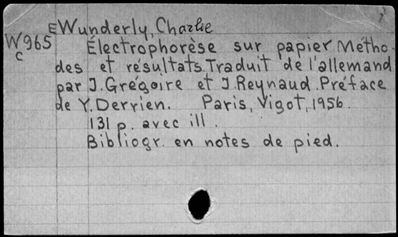 E Wunderly, Charlie
W965
c
Électrophorèse sur papier Métho-
des et résultats. Traduit de l'allemand
par J. Grégoire et J. Reynaud. Préface
de Y. Derrien. Paris, Vigot, 1956.
131 p. avec ill.
Bibliogr. en notes de pied.